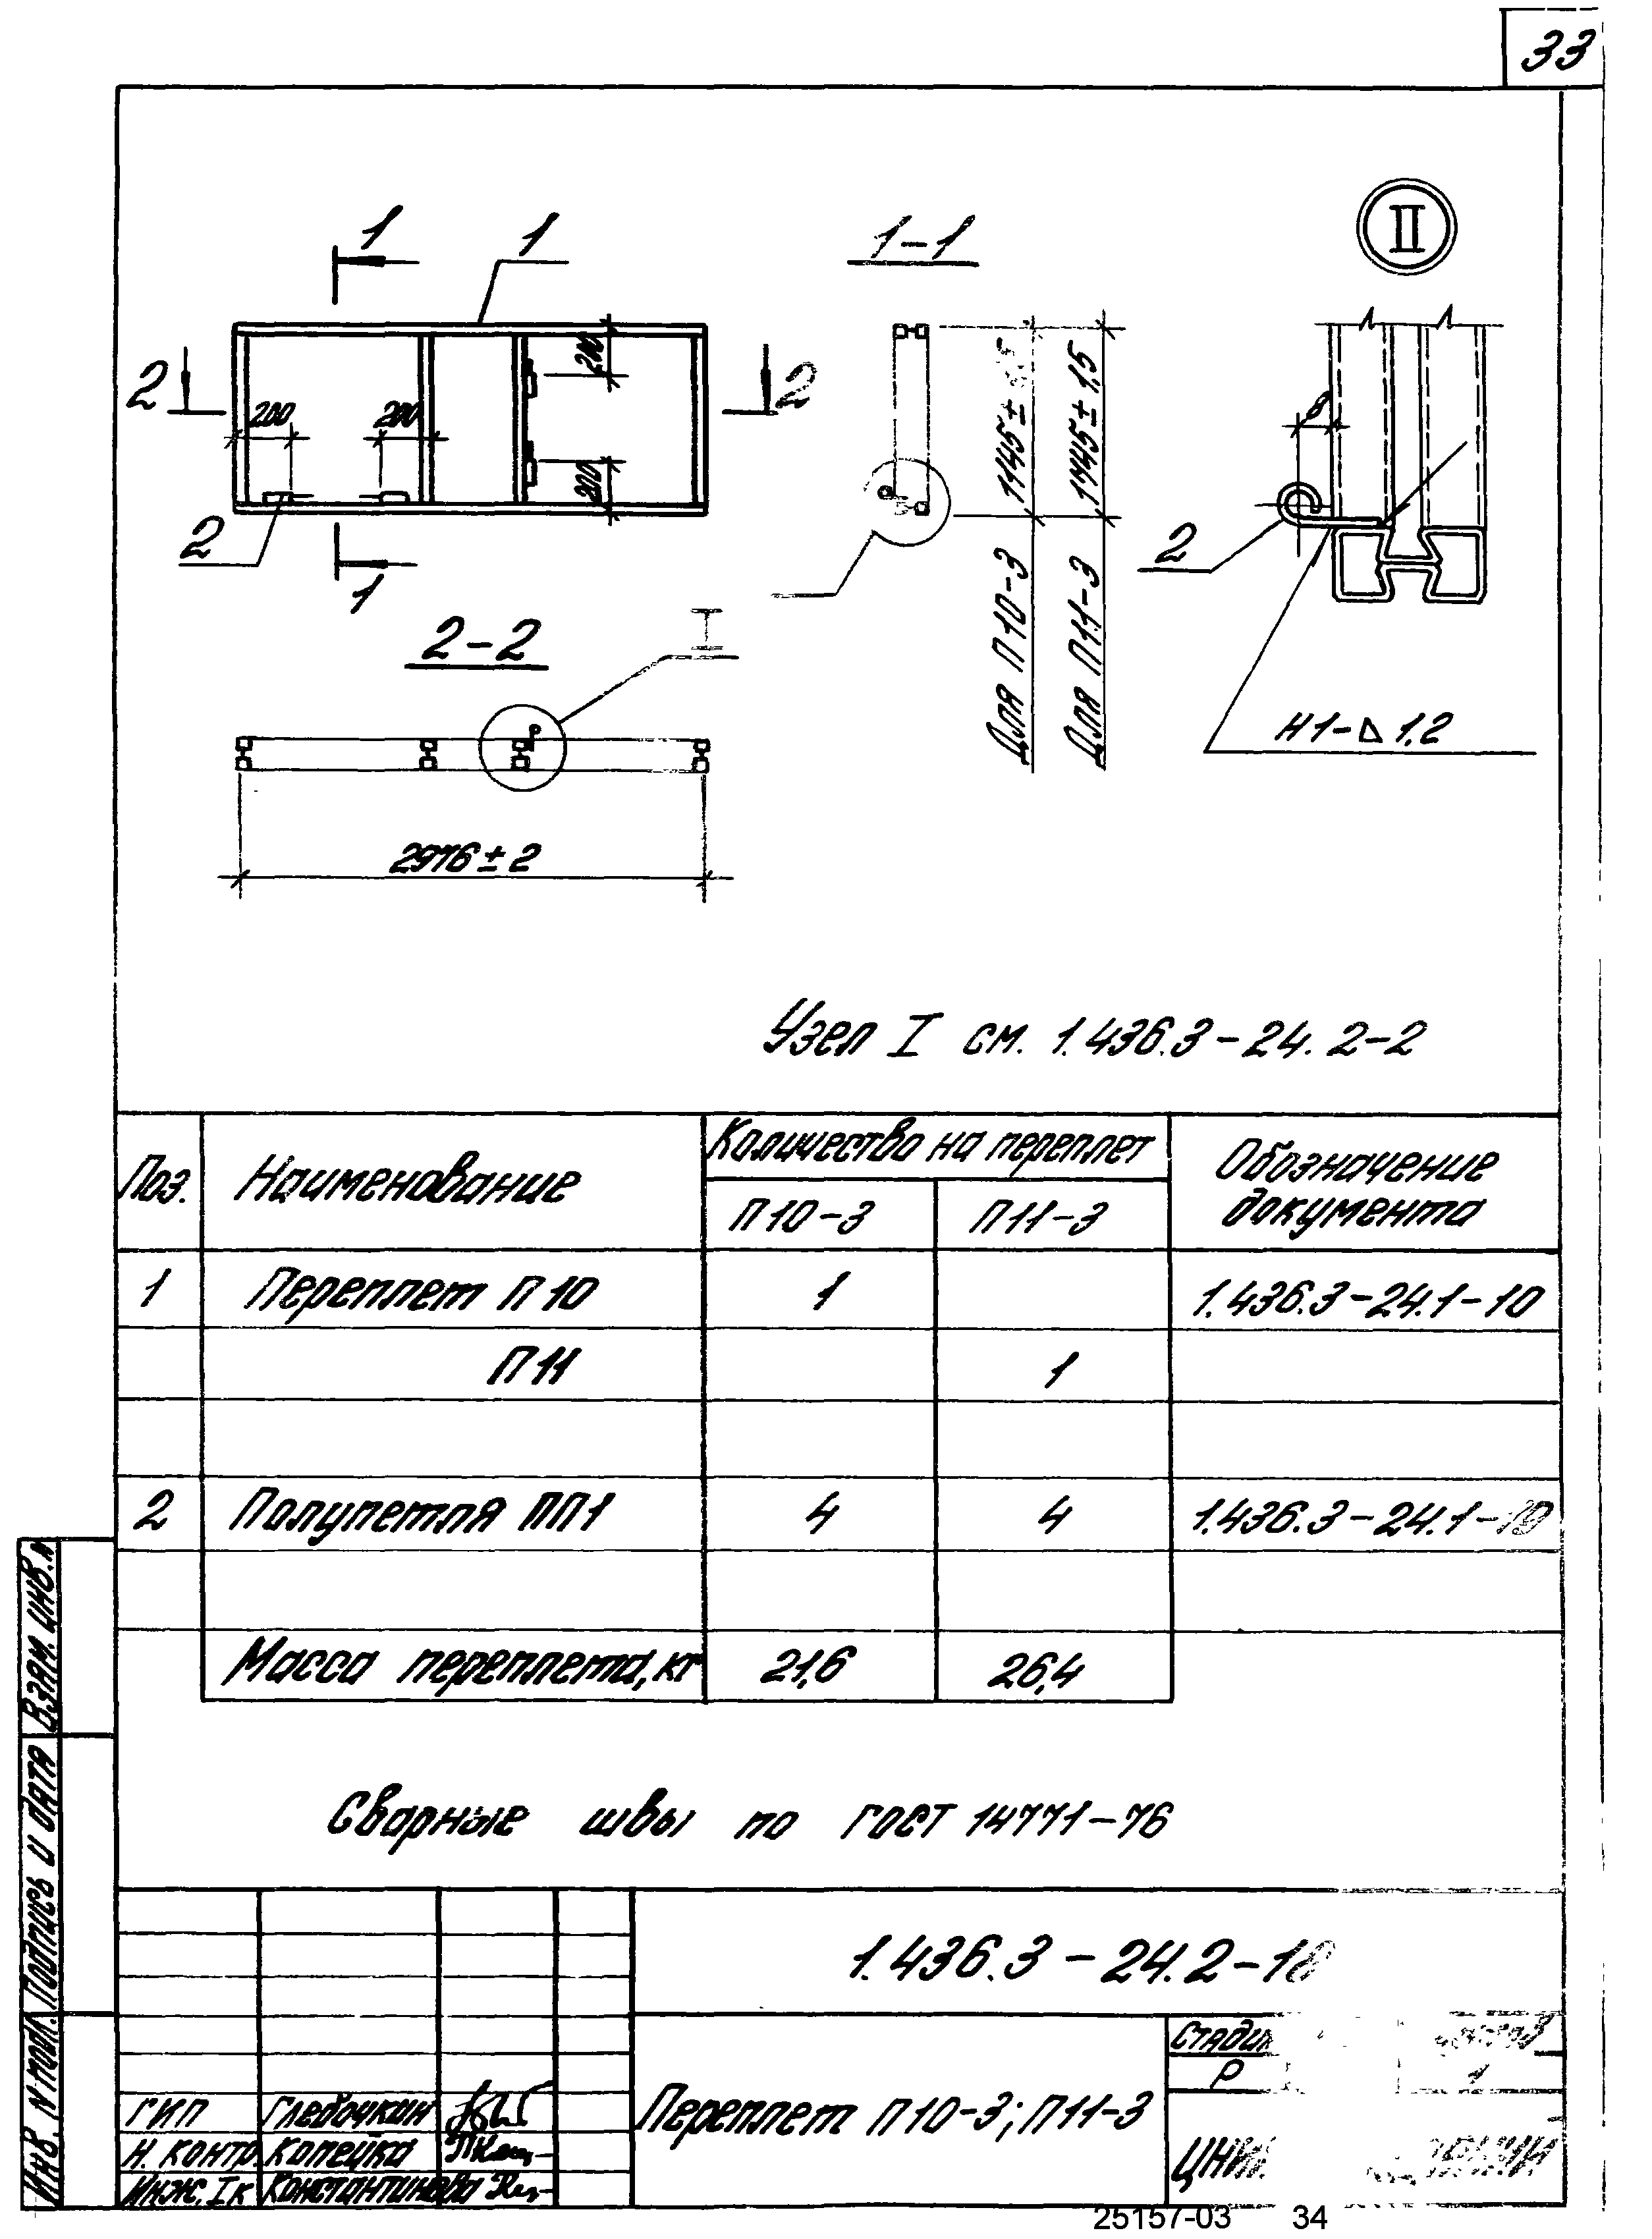 33
1
1
1-1
II
2
2
200
200
200
200
2
1
2-2
I
1145±
1745±1,5
Для П10-3
Для П11-3
8
2
Н1-⊿1,2
2976±2
Узел I см. 1.436.3-24.2-2
Поз.
Наименование
Количество на переплет
Обозначение документа
П10-3
П11-3
1 Переплет П10 1 1.436.3-24.1-10
П11 1
2 Полупетля ПП1 4 4 1.436.3-24.1-19
Масса переплета, кг 21,6 26,4
Сварные швы по ГОСТ 14771-76
Взам. инв. №
Подпись и дата
Инв. № подл.
1.436.3-24.2-18
Переплет П10-3; П11-3
Р
1
ГИП Глебочкин
Н. контр. Копейка
Инж. Iк Константинова
25157-03 34